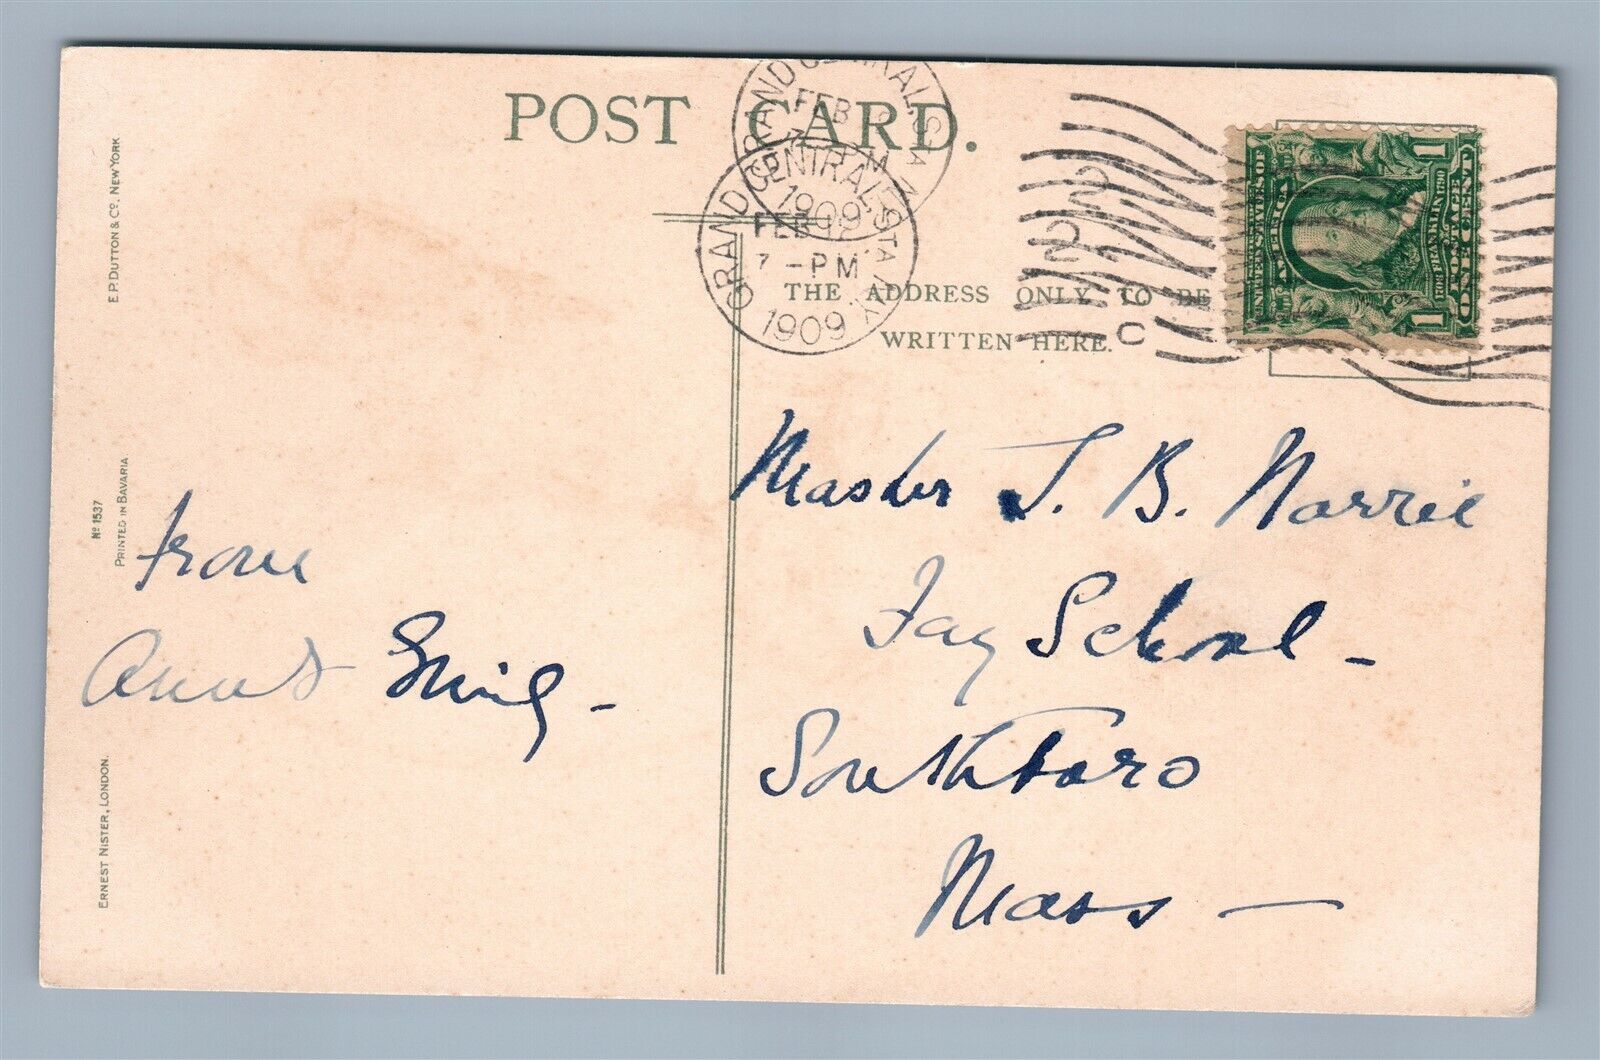 POST CARD.
GRAND CENTRAL STA. N.Y.
FEB
7 PM
1909
GRAND CENTRAL STA. N.Y.
FEB 12
7 - PM
1909
C
UNITED STATES OF AMERICA
1706 FRANKLIN 1790
POSTAGE
ONE CENT
1 1
THE ADDRESS ONLY TO BE
WRITTEN HERE.
E.P. DUTTON & Co. NEW YORK
No 1537
PRINTED IN BAVARIA
ERNEST NISTER, LONDON.
from
Aunt
Master J. B. Norrie
Fay School -
Southboro
Mass —